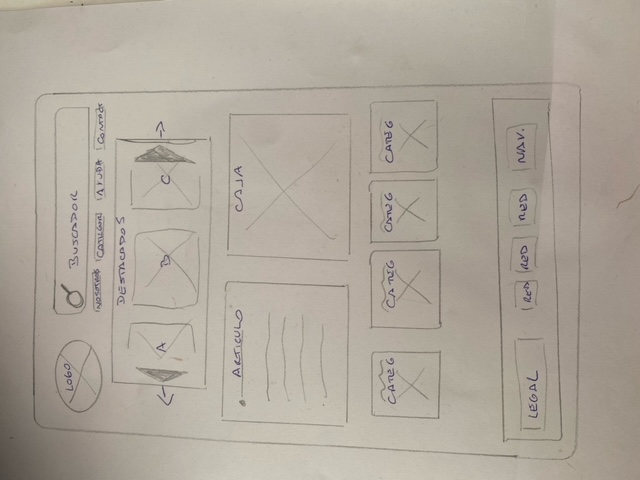 LOGO
BUSCADOR
NOSOTROS CATEGOR AYUDA CONTAC
DESTACADOS
A B C
ARTICULO CAJA
CATEG CATEG CATEG CATEG
LEGAL RED RED RED NAV.